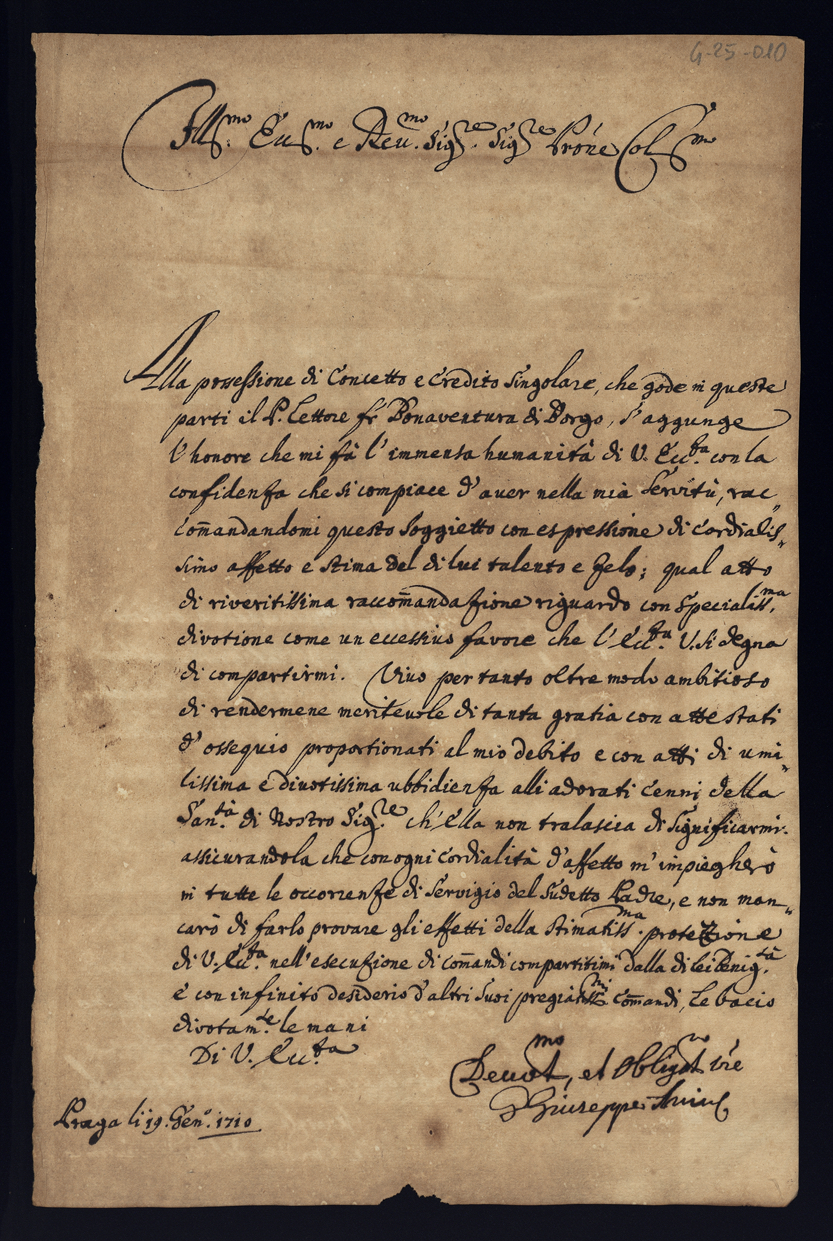 G-25-010
Illmo. Eccmo. e Reumo. Sigre. Sigre Prone Colmo
Alla possessione di Concetto e Credito Singolare, che gode in queste
parti il P. Lettore fr Bonaventura di Borgo, s'aggunge
l'honore che mi fà l'immensa humanità di V. Ecc.za con la
confidenza che si compiace d'auer nella mia Servitù, rac„
com̄andandomi questo soggietto con espressione di cordialis„
simo affetto e stima del di lui talento e Zelo; qual atto
di riveritissima raccom̄andazione riguardo con specialiss.ma
divotione come un eccessiuo favore che l'Ecc.za V. si degna
di compartirmi. Viuo per tanto oltre modo ambitioso
di rendermene meriteuole di tanta gratia con attestati
d'ossequio proportionati al mio debito e con atti di umi„
lissima e diuotissima ubbidienza alli adorati Cenni della
San.tà di Nostro Sig.re ch'Ella non tralascia di significarmi.
assicurandola che con ogni Cordialità d'affetto m'impiegherò
in tutte le occorrenze di Servigio del Sudetto Padre, e non man„
carò di farlo provare gli effetti della Stimatiss.ma protezzione
di V. Ecc.za nell'esecuzione di com̄andi compartitimi dalla di lei Benig.tà
e con infinito desiderio d'altri Suoi pregiatiss.mi com̄andi, Le bacio
divotam.te le mani
Di V. Ecc.za
Deuot.mo, et Obligat.mo
Giuseppe
Praga li 19. Gen.o 1710